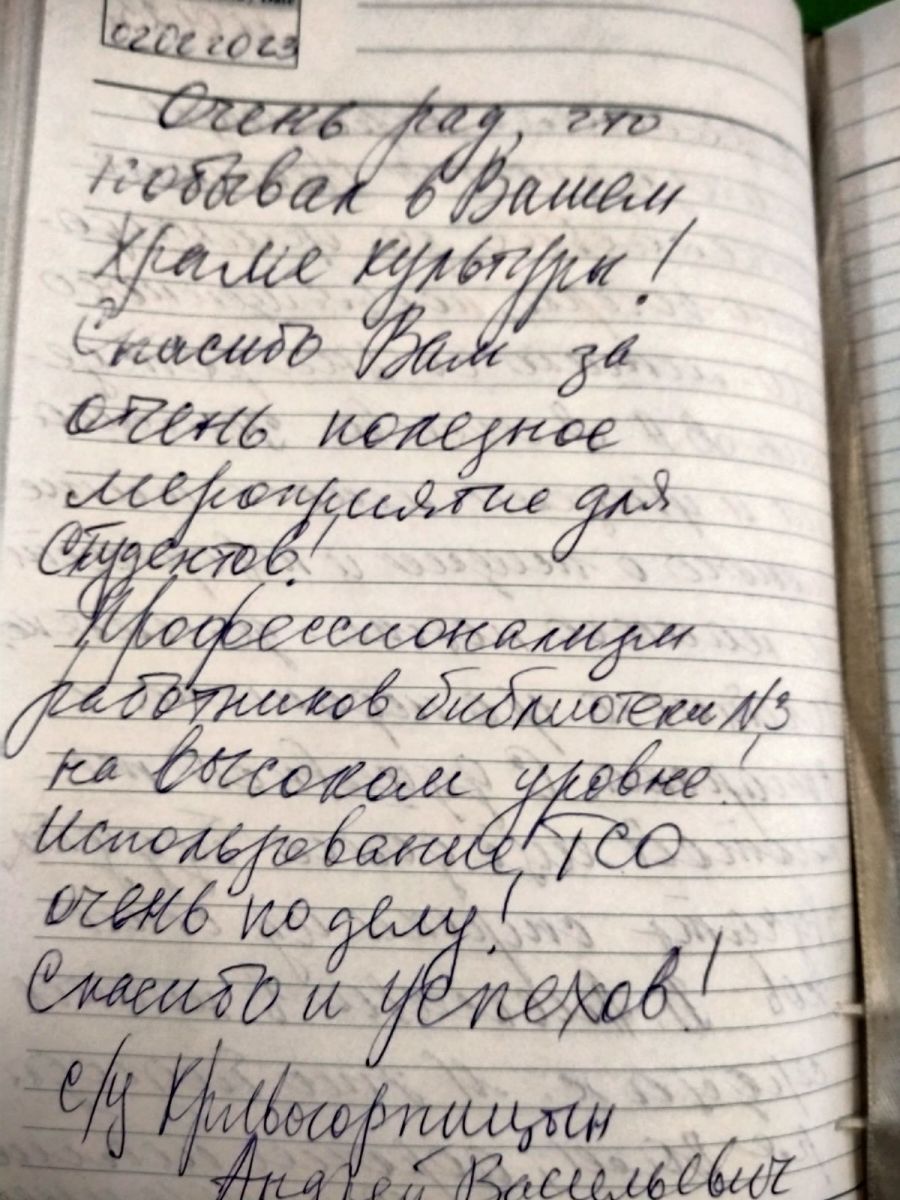 02022023
Очень рад, что
побывал в Вашем
Храме культуры!
Спасибо Вам за
очень полезное
мероприятие для
Студентов!
Профессионализм
работников библиотеки №3
на высоком уровне!
Использование ТСО
очень по делу!
Спасибо и успехов!
с/у Кривогорницын
Андрей Васильевич